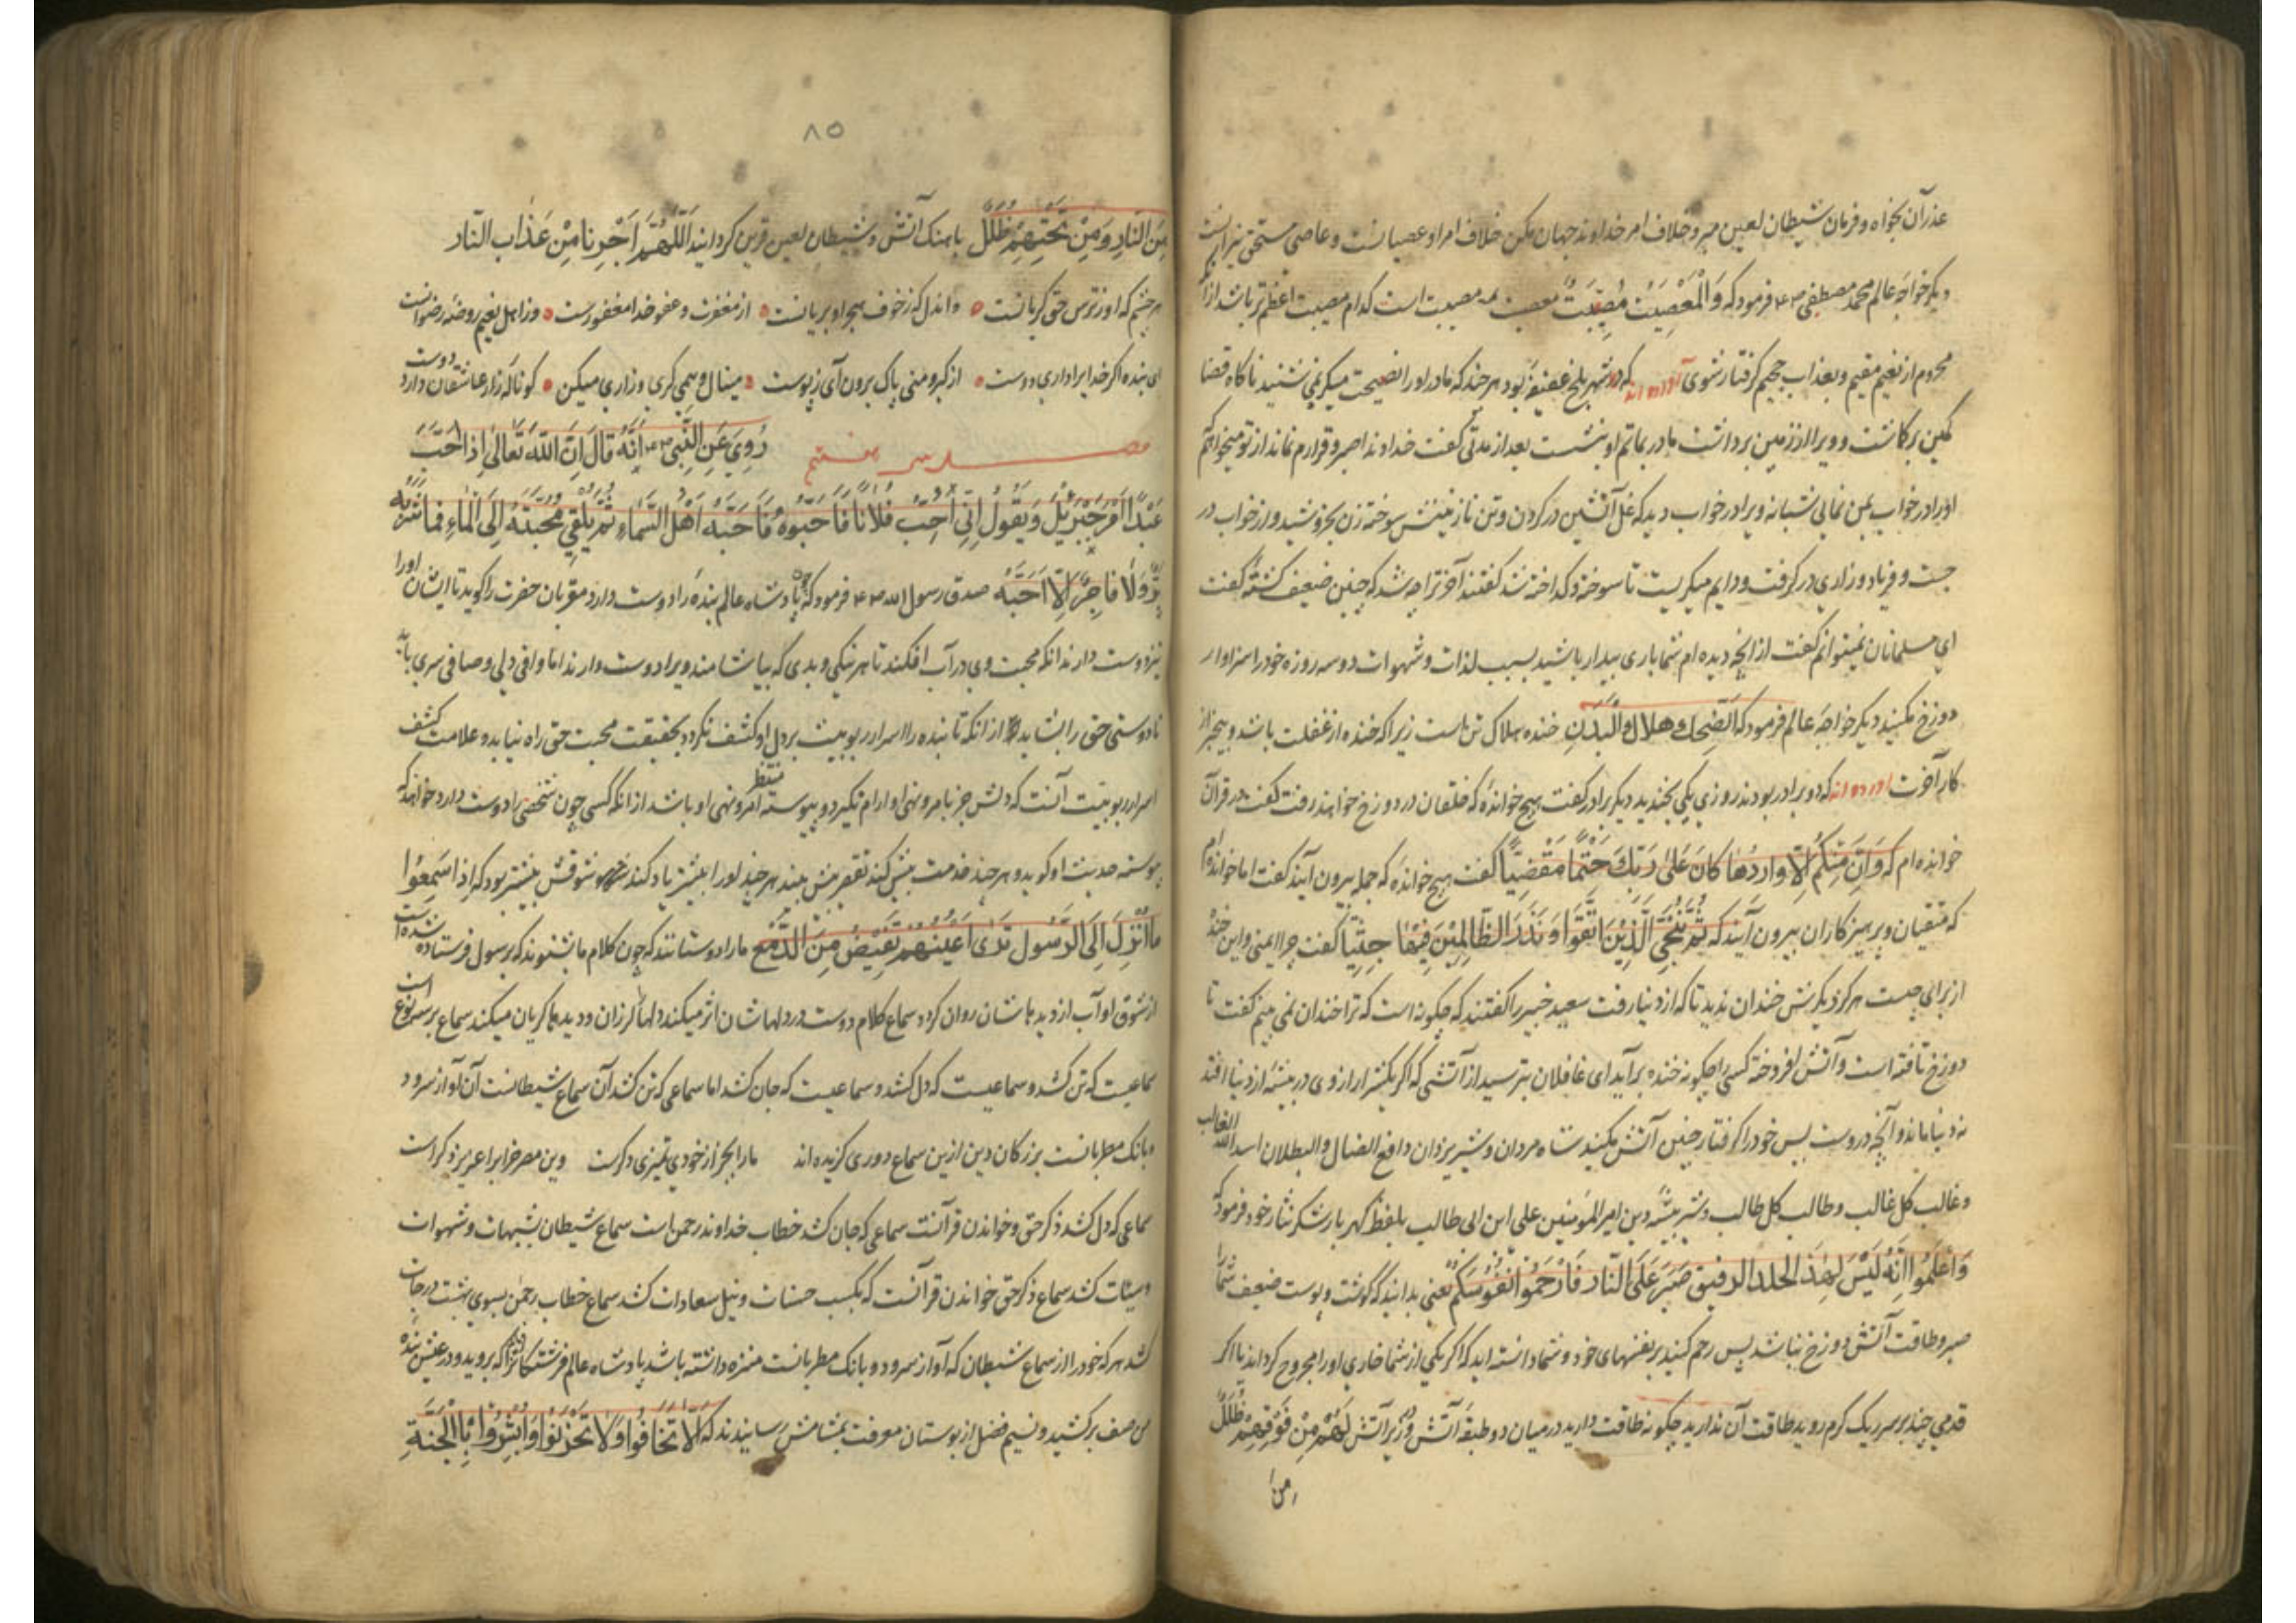 عذر آن بخواه و فرمان شیطان لعین مبر و خلاف امر خداوند جهان مکن خلاف امر او عصیانست و عاصی مستحق نیرانست
دیکر خواجه عالم محمد مصطفی فرمود که وَالْمَعْصِیَتُ مُصِیْبَتٌ معصیت مصیبت است کدام مصیبت اعظم تر باشد از آنکه
محروم از نعیم مقیم و بعذاب جحیم کرفتار شوی آورده اند که در شهر بلخ عفیفه بود هر چند که مادر او را نصیحت میکرد نمی شنید ناکاه قضا
کمین برکاشت و ویرا از زمین برداشت مادر بماتم او بنشست بعد از مدتی کفت خداوندا صبر و قرارم نماند از تو میخواهم که
او را در خواب بمن نمائی شبانه ویرا در خواب دید که غل آتشین در کردن و تن نازنینش سوخته زن بخروشید و از خواب در
جست و فریاد و زاری در کرفت و دایم میکریست تا سوخته و کداخته شد کفتند آخر ترا چه شد که چنین ضعیف کشته کفت
ای مسلمانان نمیتوانم کفت از آنچه دیده ام شما باری بیدار باشید بسبب لذات و شهوات دو سه روزه خود را سزاوار
دوزخ مکنید دیکر خواجه عالم فرمود که اَلضِّحْكُ هلاك الْبَدَنِ خنده هلاک تن است زیرا که خنده از غفلت باشد و بیخبر از
کار آخرت آورده اند که دو برادر بودند روزی یکی بخندید دیکر برادر کفت هیچ خوانده که خلقان در دوزخ خواهند رفت کفت در قرآن
خوانده ام که وَاِنْ مِنْكُمْ اِلَّا وَارِدُهَا كَانَ عَلىٰ رَبِّكَ حَتْمًا مَقْضِيًّا کفت هیچ خوانده که جمله بیرون آیند کفت اما خوانده ام
که متقیان و پرهیزکاران بیرون آیند که ثُمَّ نُنَجِّي الَّذِيْنَ اتَّقَوْا وَنَذَرُ الظَّالِمِيْنَ فِيْهَا جِثِيًّا کفت چرا ایمنی و این خنده
از برای چیست هرکز دیکرش خندان ندید تا که از دنیا رفت سعید خبیر را کفتند که چکونه است که ترا خندان نمی بینم کفت تا
دوزخ تافته است و آتش افروخته کسی را چکونه خنده برآید ای غافلان بترسید از آتشی که اکر یکشرار از وی در بیشه از دنیا افتد
نه دنیا ماند و آنچه دروست پس خود را کرفتار چنین آتش مکنید شاه مردان و شیر یزدان دافع الضال و البطلان اسد الله الغالب
و غالب کل غالب و طالب کل طالب و شیر بیشه دین امیر المؤمنین علی ابن ابی طالب بلفظ کهربار شکر نثار خود فرمود که
وَاعْلَمُوا اَنَّهُ لَيْسَ لِهٰذَ الجلد الرقیق صَبَرَ عَلَى النَّارِ فَارْحَمُوْا نُفُوْسَكُمْ یعنی بدانید که کوشت و پوست ضعیف شما را
صبر و طاقت آتش دوزخ نباشد پس رحم کنید بر نفسهای خود و شما دانسته اید که اکر یکی از شما خاری او را مجروح کرداند یا اکر
قدمی چند بر سر ریک کرم روید طاقت آن ندارید چکونه طاقت دارید در میان دو طبقه آتش و زیر آتش لَهُمْ مِنْ فَوْقِهِمْ ظُلَلٌ
من ا
۸۵
مِنَ النَّارِ وَمِنْ تَحْتِهِمْ ظُلَلٌ با سنک آتش و شیطان لعین قرین کردانید اَللّٰهُمَّ اَجِرْنَا مِنْ عَذَابِ النَّار
هر چشم که او ز ترس حق کریانست واندل که ز خوف هجر او بریانست از مغفرت و عفو خدا مغفورست وز اهل نعیم روضه رضوانست
ای بنده اکر خدا یرا داری دوست از کبر و منی پاک برون آی ز پوست مینال و همی کری و زاری میکن کو ناله زار عاشقان دارد دوست
مجلس هفتم رُوِيَ عَنِ النَّبِي اَنَّهُ قَالَ اِنَّ اللّٰهَ تَعَالٰى اِذَا اَحَبَّ
عَبْدًا اَمَرَ جِبْرَئِيْلَ وَيَقُوْلُ اِنِّي اُحِبُّ فُلَانًا فَاَحِبُّوهُ فَاَحَبَّهُ اَهْلُ السَّمَاءِ ثُمَّ يُلْقِي مَحَبَّتَهُ اِلَى الْمَاءِ فَمَا شَرِبَهُ
بَرٌّ وَلَا فَاجِرٌ اِلَّا اَحَبَّهُ صدق رسول الله فرمود که چون پادشاه عالم بنده را دوست دارد مقربان حضرت را کوید تا ایشان او را
نیز دوست دارند انکه محبت وی در آب افکند تا هر نیکی و بدی که بیاشامند ویرا دوست دارند اما وافی دلی و صافی سری باید
تا دوستی حق را بشاید از انکه تا بنده را اسرار ربوبیت بر دل او کشف نکردد بحقیقت محبت حق راه نیابد و علامت کشف
اسرار ربوبیت آنست که دلش جز بامر و نهی او ارام نکیرد و پیوسته منتظر امر و نهی او باشد از انکه کسی چون شخصی را دوست دارد خواهد که
پیوسته حدیث او کوید و هر چند خدمت بیش کند تقصیر بیش بیند هر چند او را بیشتر یاد کند شوقش بیشتر بود که اِذَا سَمِعُوْا
مَا اُنْزِلَ اِلَى الرَّسُوْلِ تَرٰى اَعْيُنَهُمْ تَفِيْضُ مِنَ الدَّمْعِ ما را دوستانند که چون کلام ما بشنوند که برسول فرستاده شده است
از شوق او آب از دیدهاشان روان کردد سماع کلام دوست در دلهاشان اثر میکند دلها لرزان و دیدها کریان میکند سماع بر سه نوع است
سماعیست که تن کشد و سماعیست که دل کشد و سماعیست که جان کشد اما سماعی که تن کشد آن سماع شیطانست آن آواز سرود
و بانک مطربانست بزرکان دین ازین سماع دوری کزیده اند مارا بجز از خودی تمیزی دکرست وین مصر خراب را عزیز دکر است
سماعی که دل کشد ذکر حق و خواندن قرآنست سماعی که جان کشد خطاب خداوند رحمن است سماع شیطان بشبهات و شهوات
و سیئات کشد سماع ذکر حق خواندن قرآنست که بکسب حسنات و نیل سعادات کشد سماع خطاب رحمن بسوی بهشت درجات
کشد هر که خود را از سماع شیطان که آواز سرود و بانک مطربانست منزه داشته باشد پادشاه عالم فرشتکانرا که بروید و در عیش بنده
من صف برکشید و نسیم فضل از بوستان معرفت بمشامش رسانید ندا که اَلَّا تَخَافُوْا وَلَا تَحْزَنُوْا وَاَبْشِرُوْا بِالْجَنَّةِ